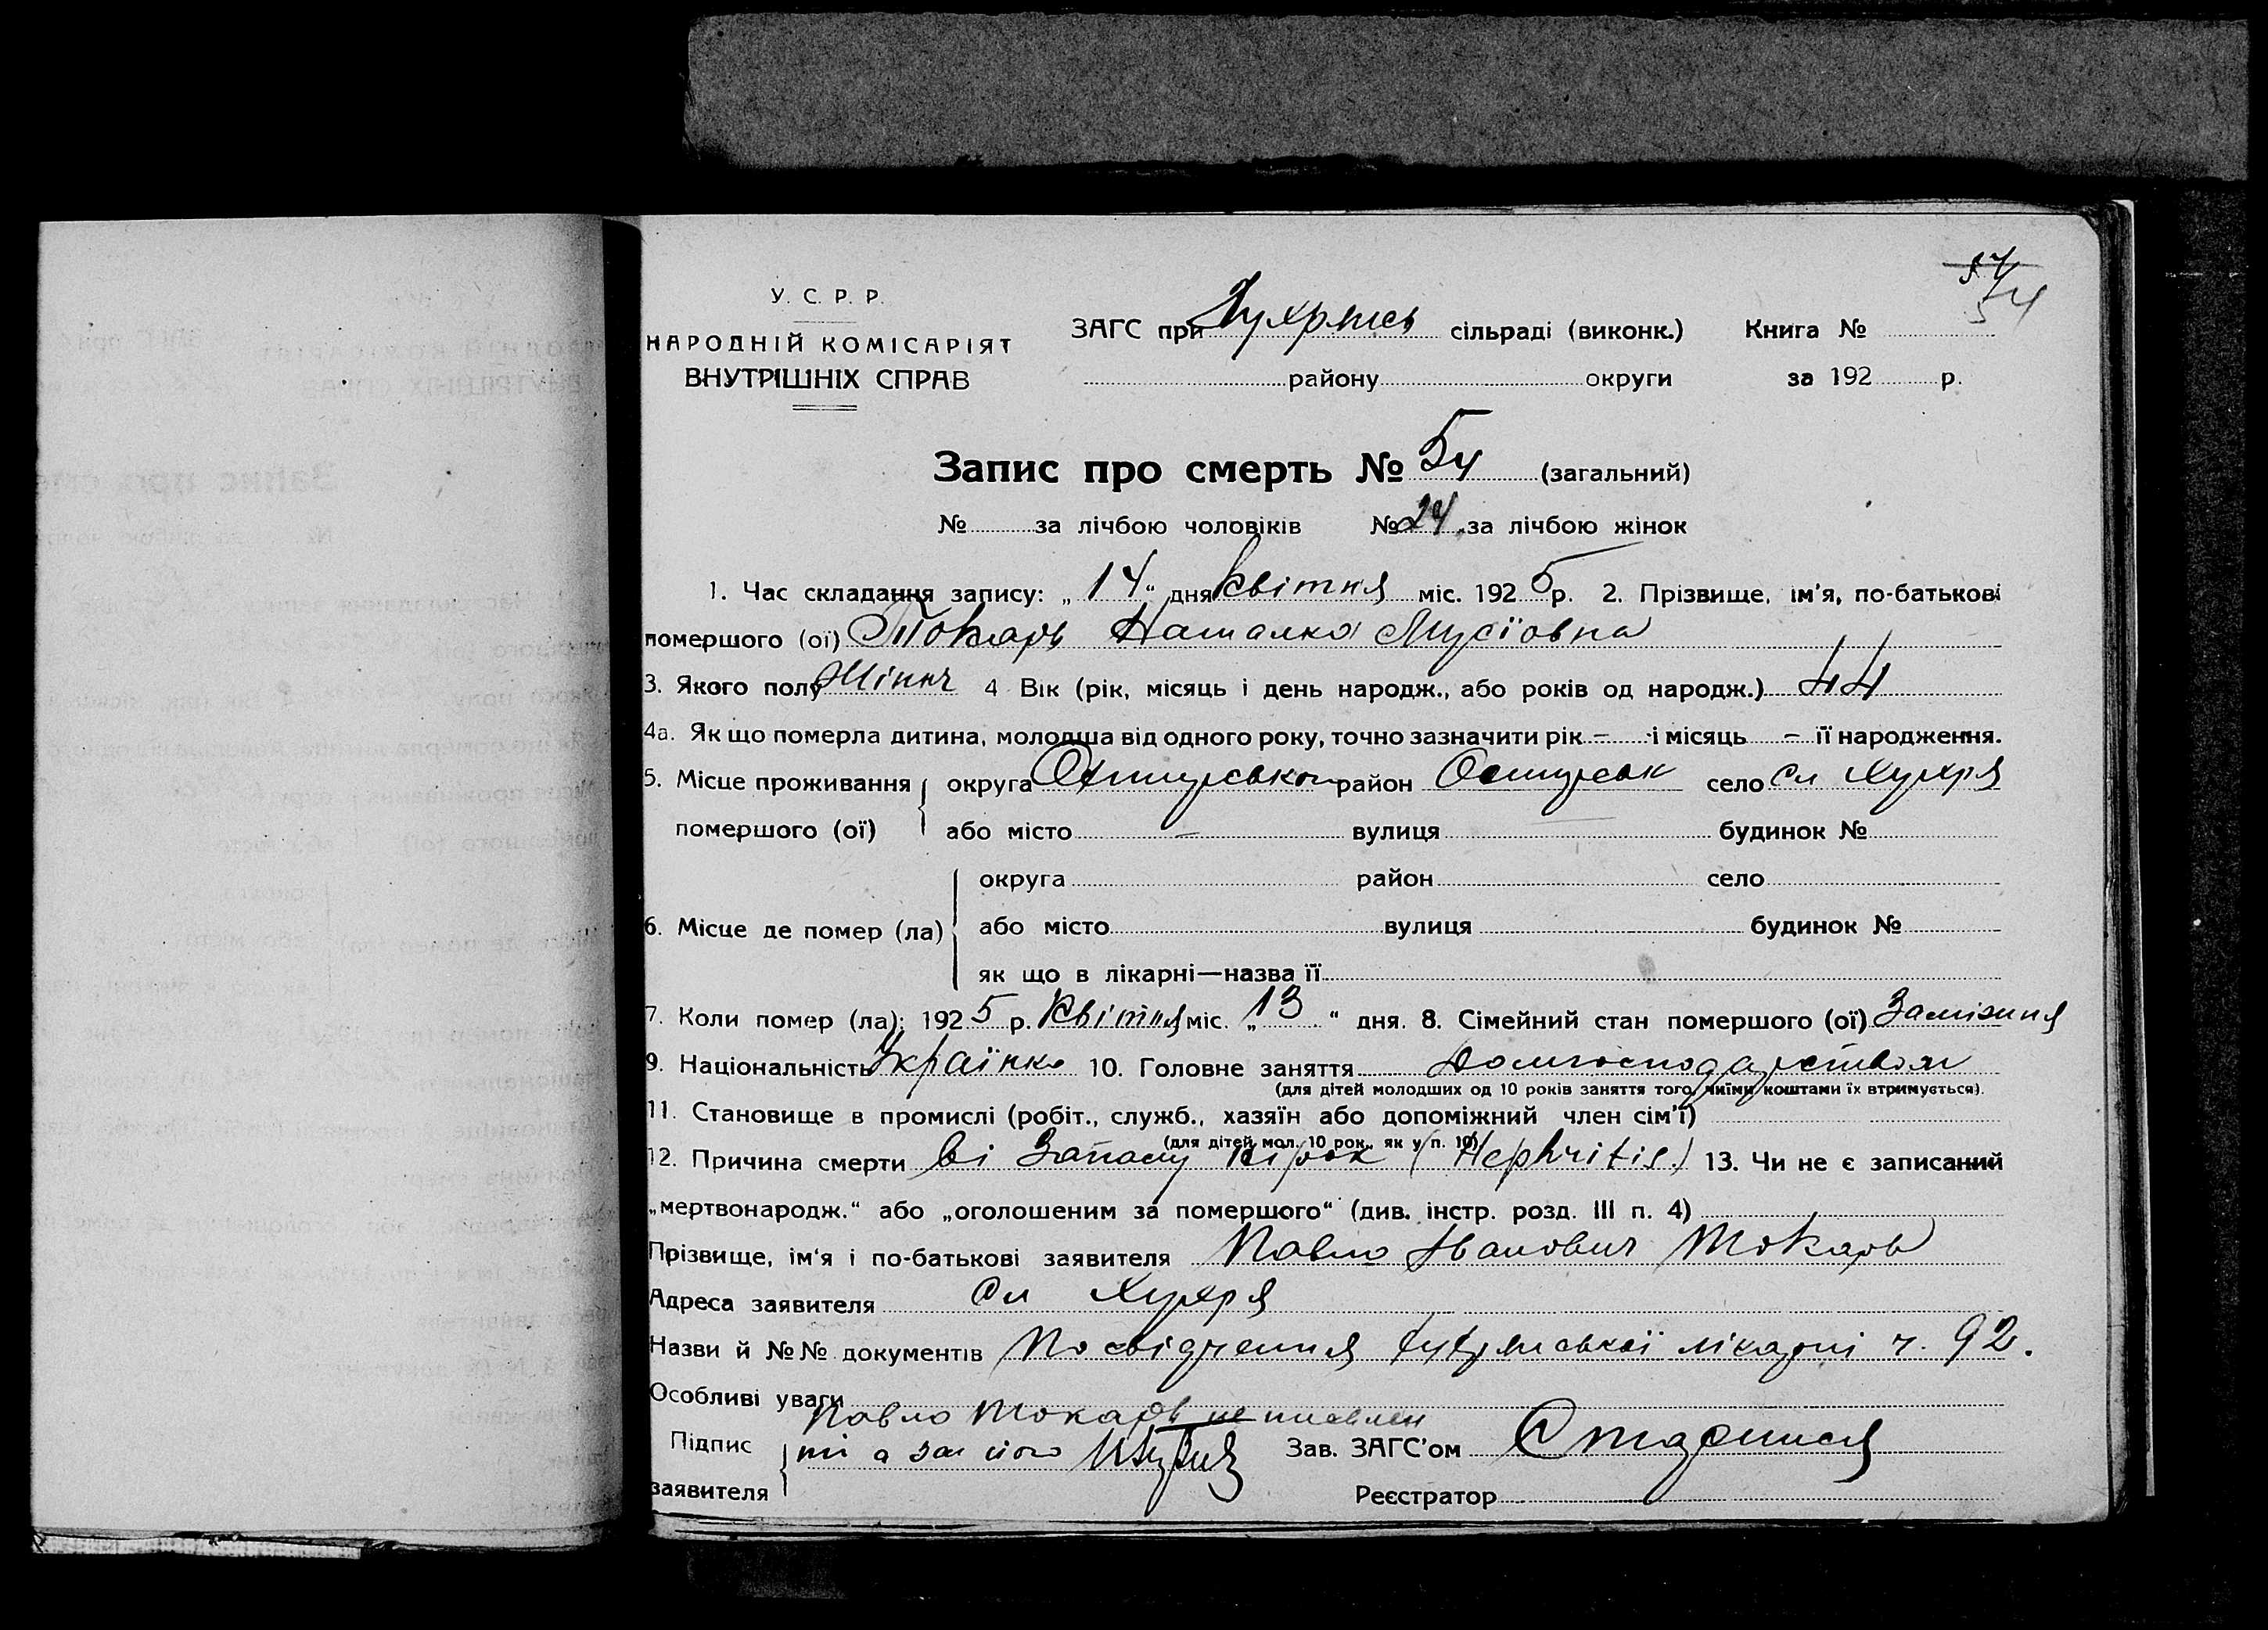 54
54
У. С. Р. Р.
НАРОДНІЙ КОМІСАРІЯТ
ВНУТРІШНІХ СПРАВ
ЗАГС при сільраді (виконк.) Книга №
району округи за 192 р.
Запис про смерть № 54 (загальний)
№ за лічбою чоловіків № 24 за лічбою жінок
1. Час складання запису: „14“ дня квітня міс. 1925 р. 2. Прізвище, ім'я, по-батькові
помершого (ої) Токарь Наталка Мусіовна
3. Якого полу Жіноч 4 Вік (рік, місяць і день народж., або років од народж.) 44
4а. Як що померла дитина, молодша від одного року, точно зазначити рік – і місяць – її народження.
5. Місце проживання округа район село сл Хухря
помершого (ої) або місто – вулиця будинок №
округа район село
6. Місце де помер (ла) або місто вулиця будинок №
як що в лікарні—назва її
7. Коли помер (ла): 1925 р. Квітня міс. „13“ дня. 8. Сімейний стан помершого (ої) Заміжня
9. Національність Українка 10. Головне заняття домгосподарством
(для дітей молодших од 10 років заняття того, чиїми коштами їх втримується).
11. Становище в промислі (робіт., служб., хазяїн або допоміжний член сім'ї)
(для дітей мол. 10 рок., як у п. 10)
12. Причина смерти ві Запалу нірок (Nephritis) 13. Чи не є записаний
„мертвонародж.“ або „оголошеним за помершого“ (див. інстр. розд. III п. 4)
Прізвище, ім'я і по-батькові заявителя Павло Іванович Токарь
Адреса заявителя сл Хухря
Назви й №№ документів Посвідчення лікарні ч. 92.
Особливі уваги
Павло Токарь не писемен
Підпис а за його Зав. ЗАГС'ом
заявителя Реєстратор